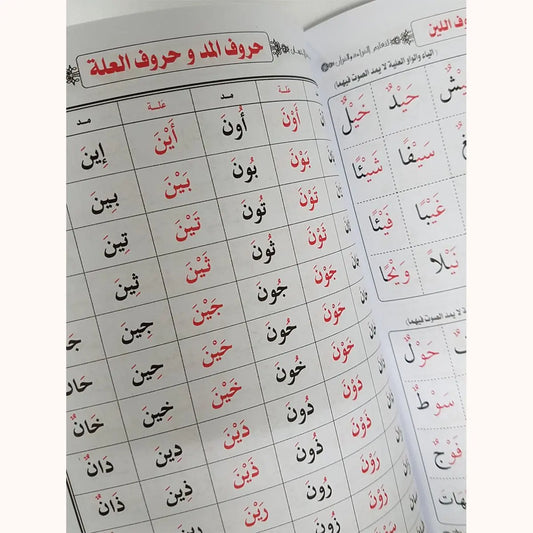 حروف المد و حروف العلة
علـة مد علـة مد
أَوْنَ أُونَ أَيْنَ إِينَ
بَوْنَ بُونَ بَيْنَ بِينَ
تَوْنَ تُونَ تَيْنَ تِينَ
ثَوْنَ ثُونَ ثَيْنَ ثِينَ
جَوْنَ جُونَ جَيْنَ جِينَ
حَوْنَ حُونَ حَيْنَ حِينَ
خَوْنَ خُونَ خَيْنَ خِينَ خَانٌ
دَوْنَ دُونَ دَيْنَ دِينَ دَانٌ
ذَوْنَ ذُونَ ذَيْنَ ذِينَ ذَانٌ
رَوْنَ رُونَ رَيْنَ رِينَ
زَوْنَ زُونَ
اللين
(الياء والواو العلية لا يمد الصوت فيهما)
حَيْدٌ خَيْلٌ
سَيْفًا شَيْئًا
غَيْبًا فَيْئًا
نَبْلًا وَيْحًا
لا يمد الصوت فيهما)
حَوْلٌ
سَوْطٌ
فَوْجٌ